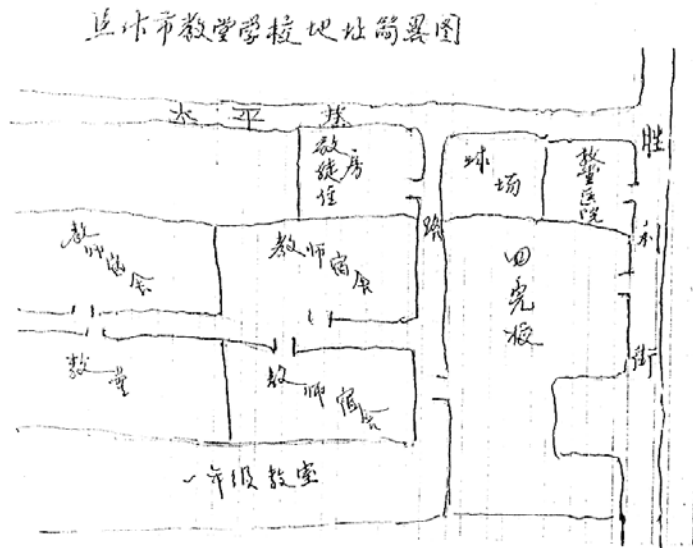 焦作市教堂学校地址简略图
太平基
教徒住房
球场
教堂医院
胜利街
路
教师宿舍
教师宿舍
四完校
教堂
教师宿舍
一年级教室